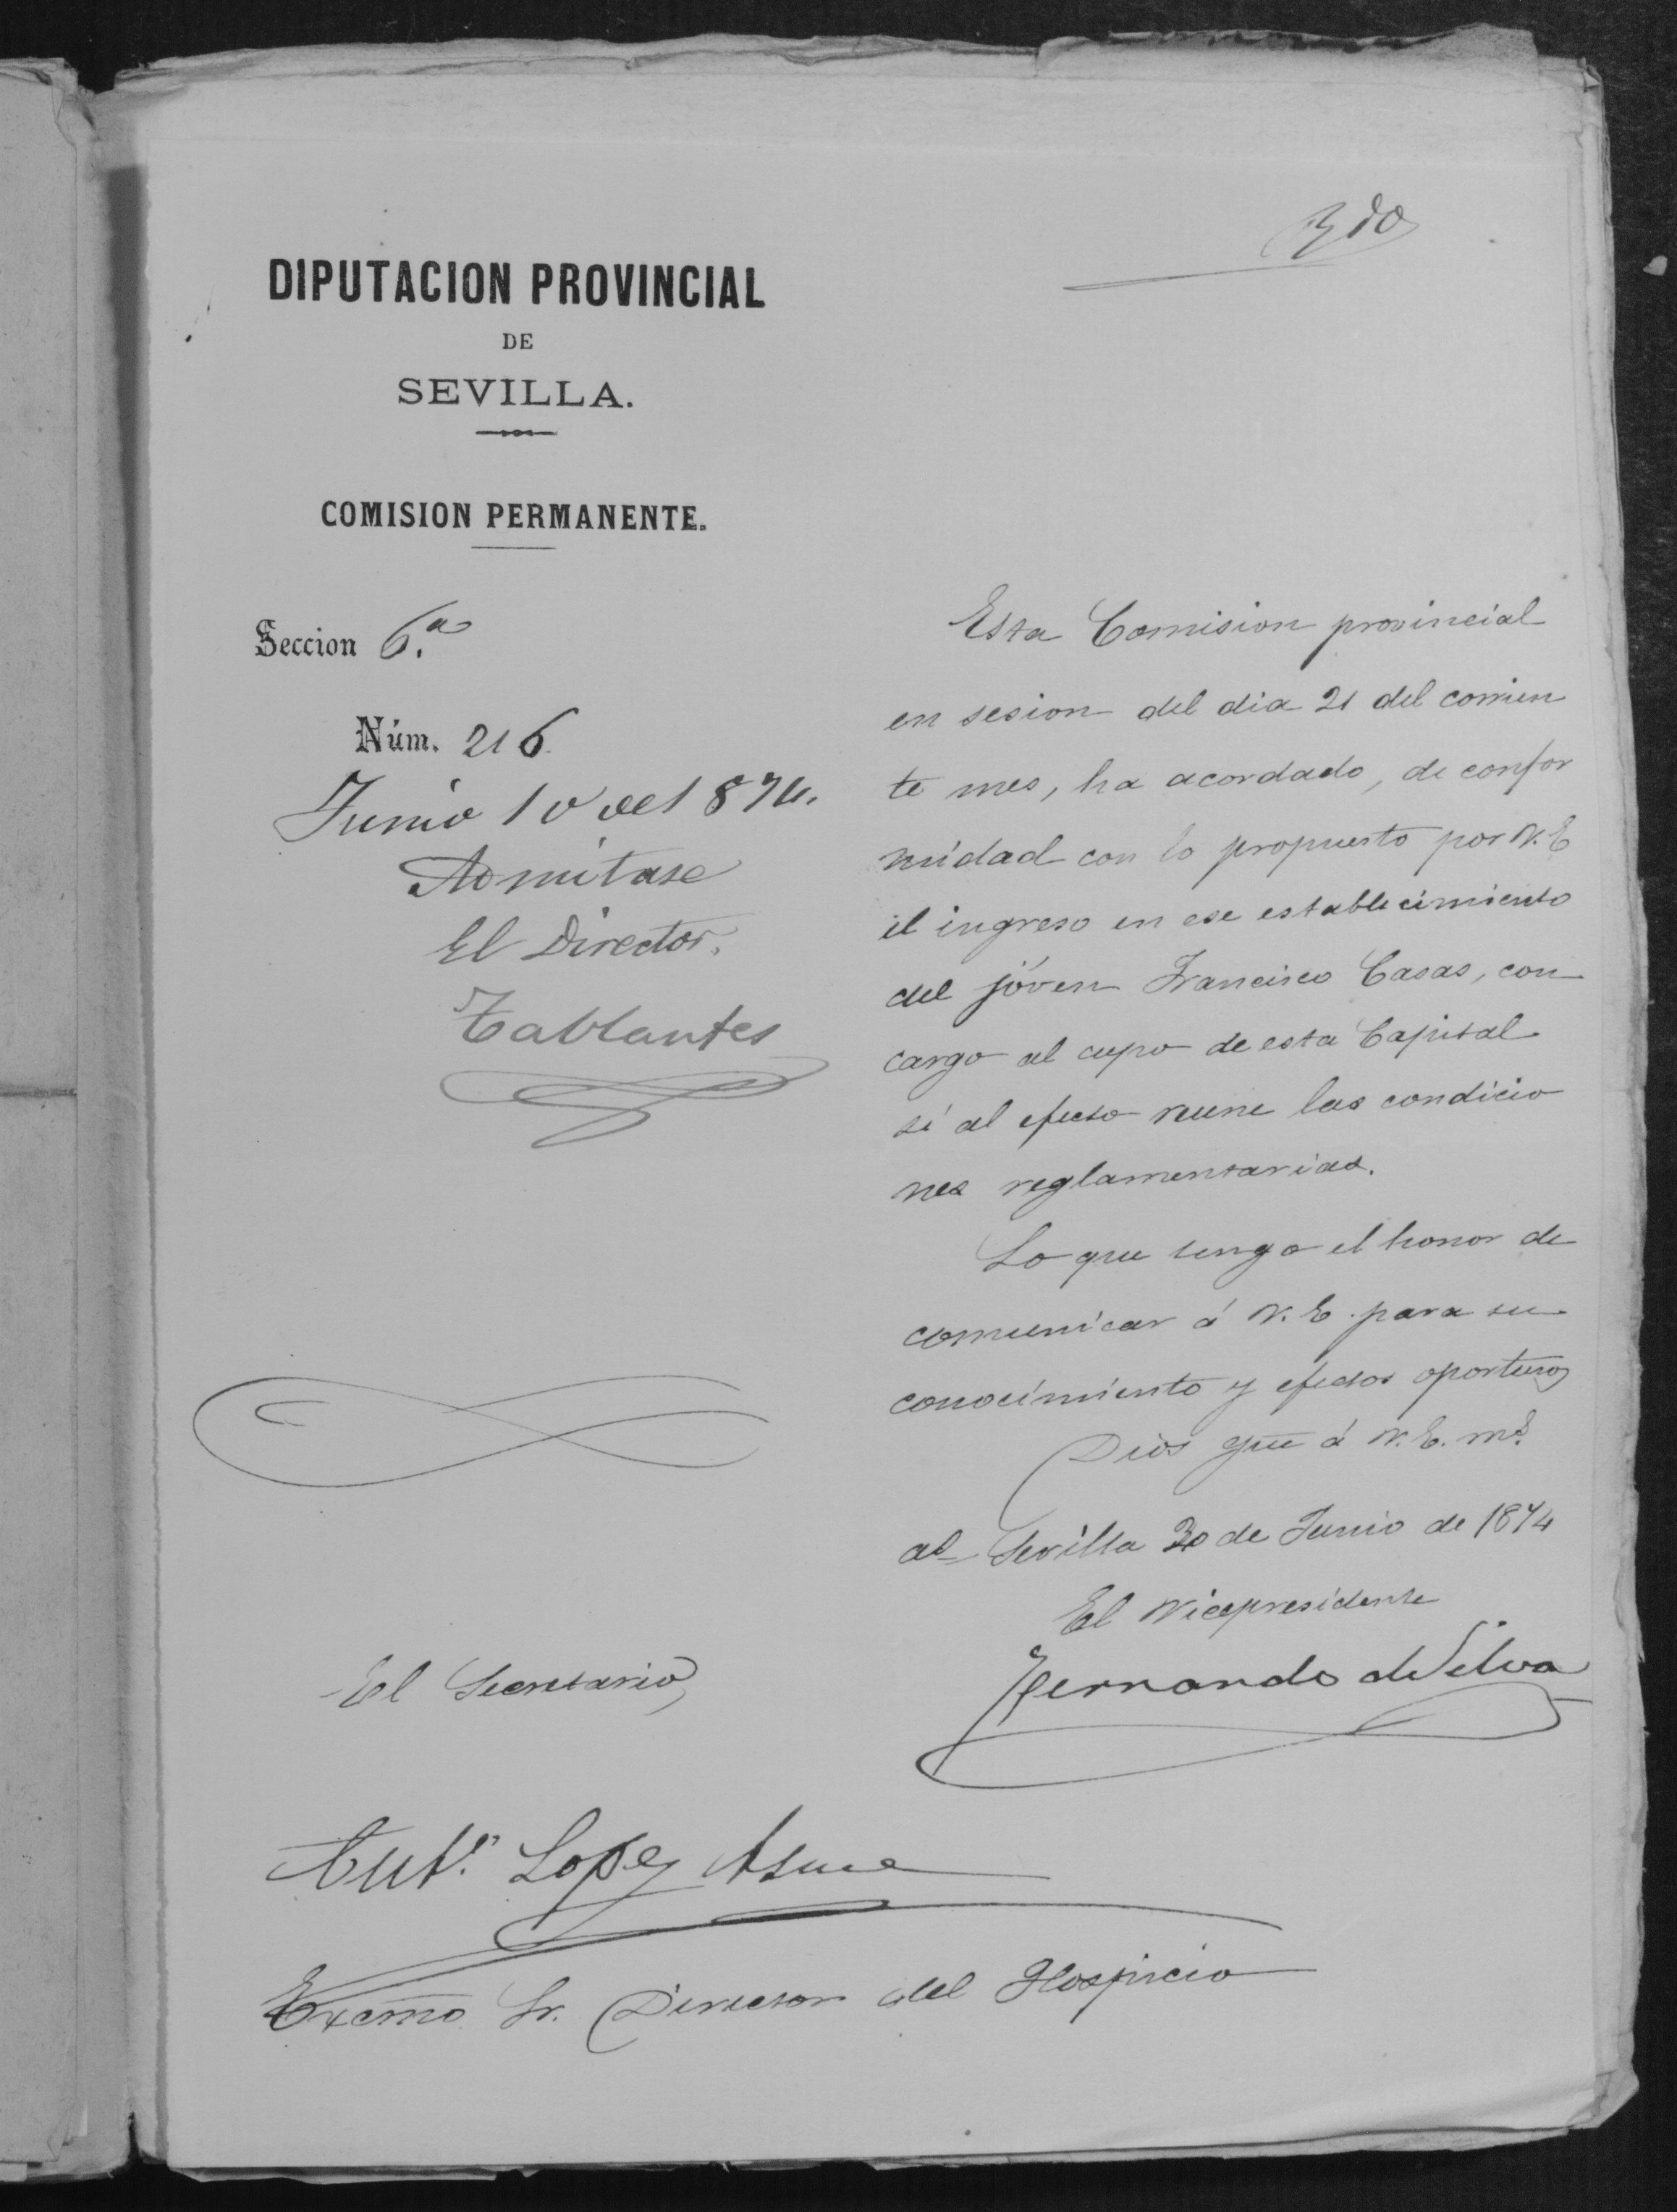 DIPUTACION PROVINCIAL
DE
SEVILLA.
COMISION PERMANENTE.
Seccion 6.ª
Núm. 216
Junio 10 de 1874.
Admitase
El Director.
Tablantes
Esta Comision provincial
en sesion del dia 21 del corrien
te mes, ha acordado, de confor
midad con lo propuesto por V. E
el ingreso en ese establecimiento
del jóven Francisco Casas, con
cargo al cupo de esta Capital
si al efecto reune las condicio
nes reglamentarias.
Lo que tengo el honor de
comunicar á V. E. para su
conocimiento y efectos oportunos
Dios gue á V. E. ms.
as Sevilla 30 de Junio de 1874
El Vicepresidente
Fernando de Silva
El Secretario,
Ant.º Lopez
Excmo Sr. Director del Hospicio